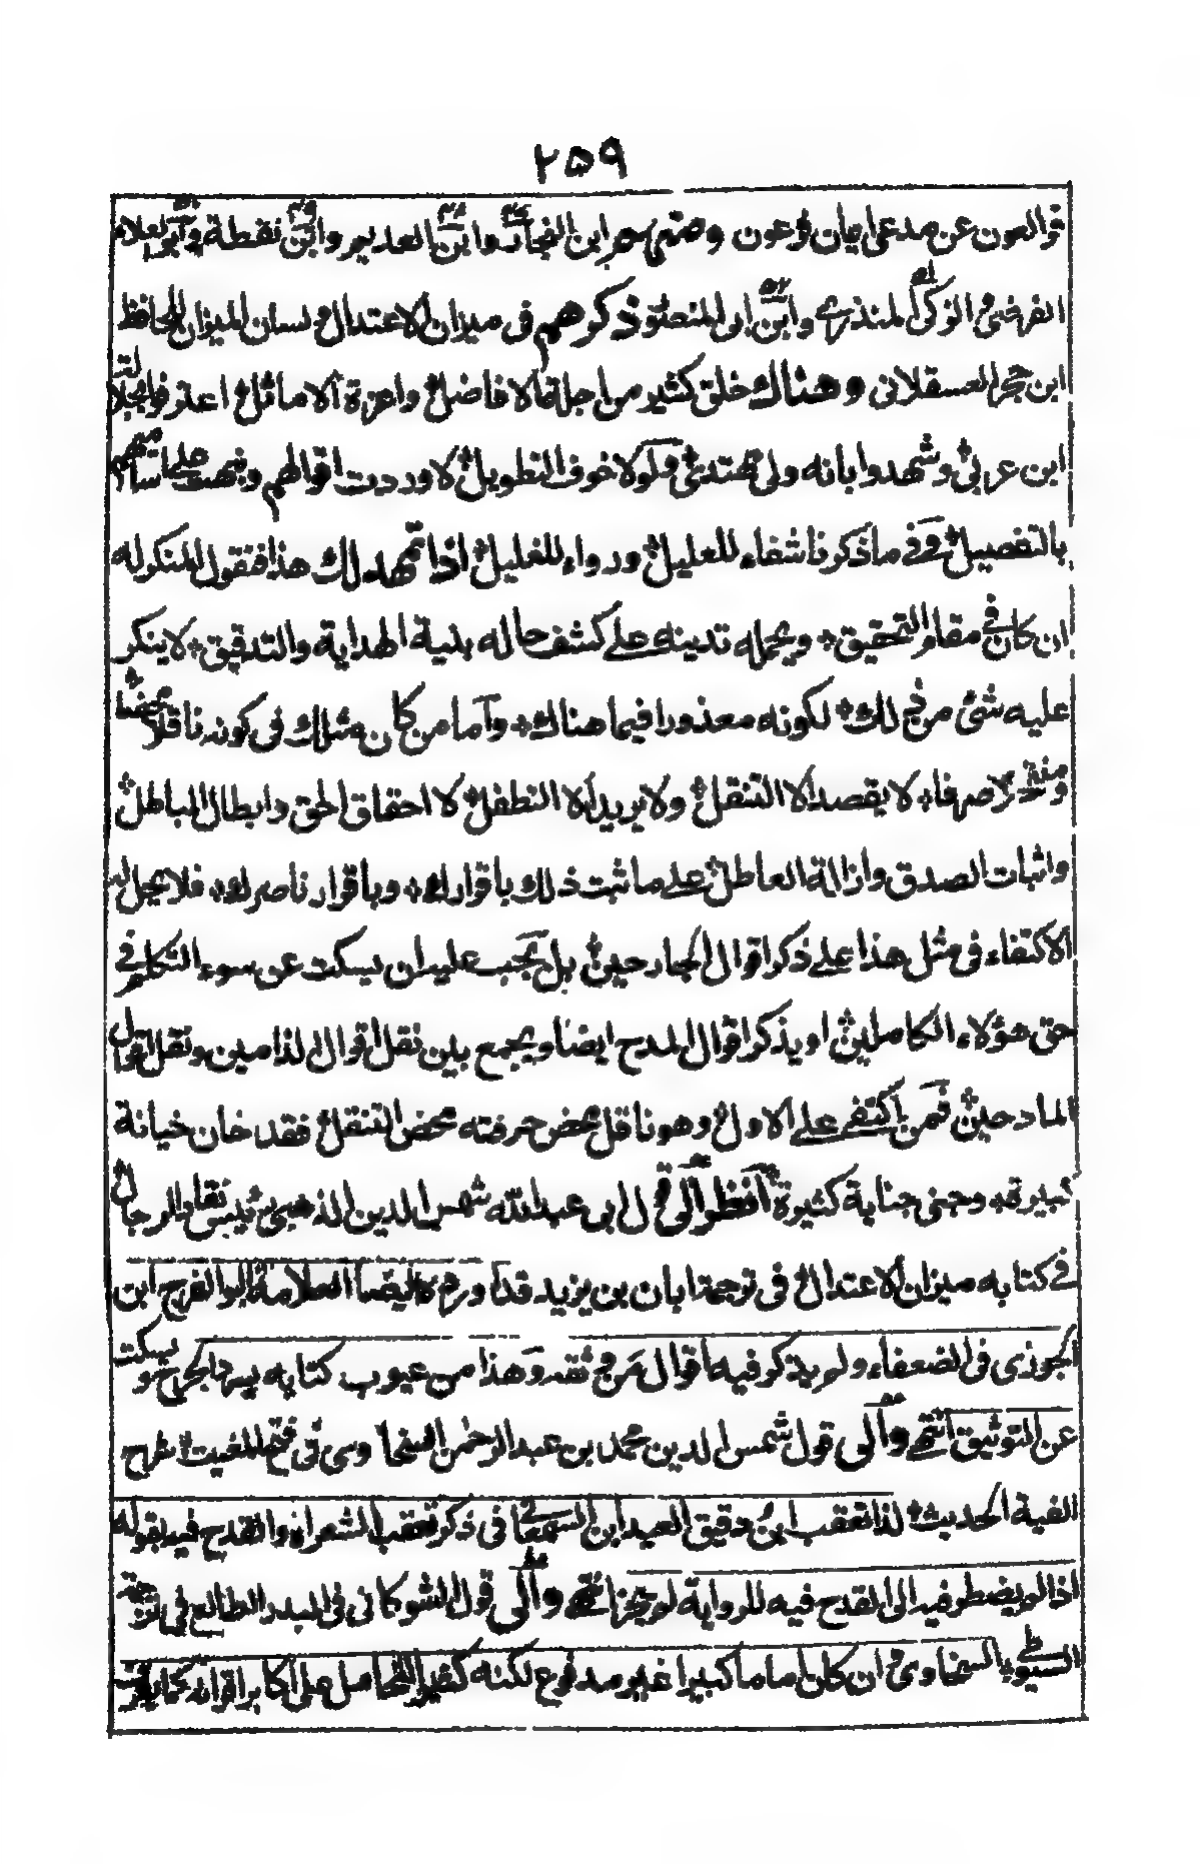 ٢٥٩
قوالعون عن مدعى ايمان فرعون ومنهم ابن النجار وابن العديم وابن نقطة وابو العلاء
الفرضى والزكى المنذرى وابن ابى المنصور ذكرهم فى ميزان الاعتدال ولسان الميزان الحافظ
ابن حجر العسقلانى وهناك خلق كثير من اجلة الافاضل واعزة الاماثل اعترفوا بجلالة
ابن عربى وشهدوا بانه ولى مهتدى ولولا خوف التطويل لاوردت اقوالهم ونبهت على اسمائهم
بالتفصيل وفى ما ذكرنا شفاء للعليل ودواء للغليل اذا تمهد لك هذا فنقول المنكر له
ان كان فى مقام التحقيق ويحمله تدينه على كشف حاله بنية الهداية والتدقيق لا ينكر
عليه شئ من ذلك لكونه معذورا فيما هناك واما من كان مثلك فى كونه ناقلا محضا
ومنتحلا صرفا لا يقصد الا التنقل ولا يريد الا التطفل لا احقاق الحق وابطال الباطل
واثبات الصدق وازالة العاطل على ما ثبت ذلك باقرارك وباقرار ناصرك فلا يحل له
الاكتفاء فى مثل هذا على ذكر اقوال الجارحين بل يجب عليه ان يسكت عن سوء التكلم فى
حق هؤلاء الكاملين او يذكر اقوال المدح ايضا ويجمع بين نقل اقوال الذامين ونقل اقوال
المادحين فمن اكتفى على الاول وهو ناقل محض حرفته محض التنقل فقد خان خيانة
كبيرة وجنى جناية كثيرة انظر الى قول ابى عبد الله شمس الدين الذهبى رئيس نقاد الرجال
فى كتابه ميزان الاعتدال فى ترجمة ابان بن يزيد قد اورده ايضا العلامة ابو الفرج ابن
الجوزى فى الضعفاء ولم يذكر فيه اقوال من وثقه وهذا من عيوب كتابه يسرد الجرح ويسكت
عن التوثيق انتهى والى قول شمس الدين محمد بن عبد الرحمن السخاوى فى فتح المغيث شرح
الفية الحديث لذا تعقب ابن دقيق العيد ابن السمعانى فى ذكره بعض الشعراء والقدح فيه بقوله
اذا لم يضطر فيه الى القدح فيه للرواية لم يجز انتهى والى قول الشوكانى فى البدر الطالع فى ترجمة
السيوطى السخاوى وان كان اماما كبيرا غير مدفوع لكنه كثير التحامل على اكابر اقرانه كما يعرفه